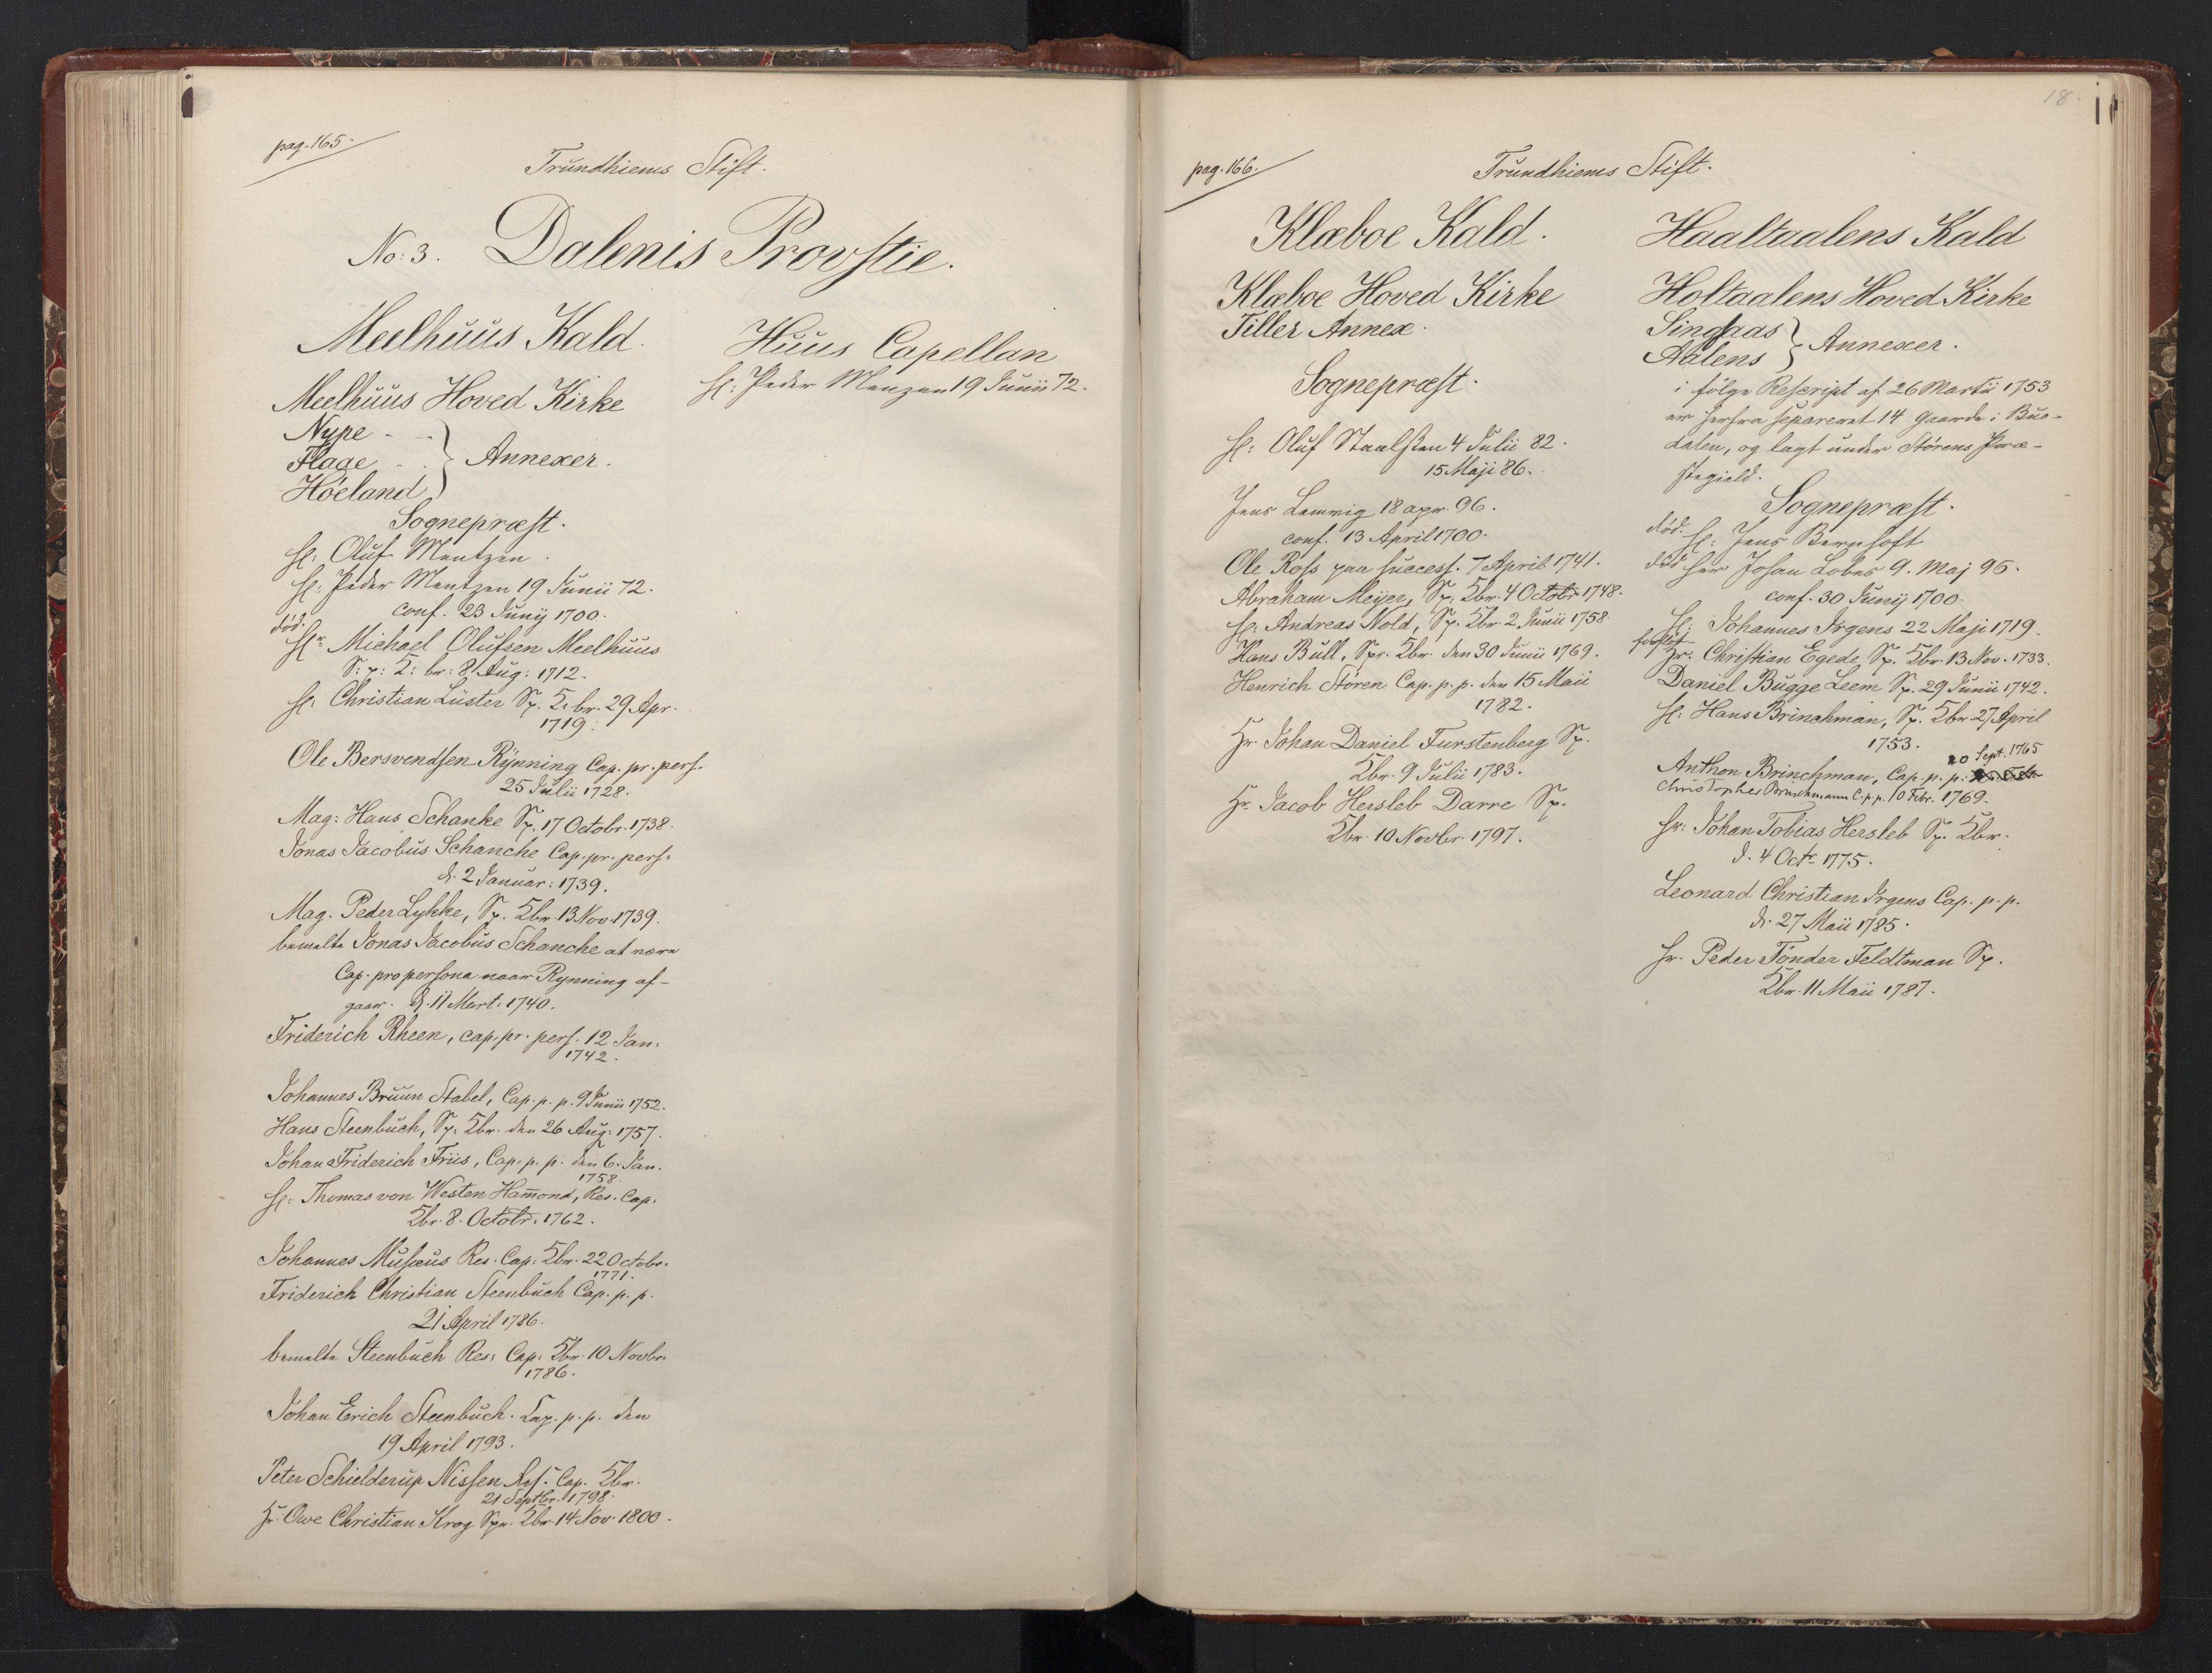 pag. 165.
Trundhiems Stift.
No: 3. Dalenis Provstie.
Meelhuus Kald.
Meelhuus Hoved Kirke
Nype - -
Flaae - - } Annexer.
Höeland
Sognepræst.
H: Oluf Mentzen.
H: Peder Mentzen 19 Junii 72.
conf. 23 Junij 1700.
död.
Hr Michael Olufsen Meelhuus
S: p: 5: br: 8. Aug: 1712.
H: Christian Lüster Sp. 5. br. 29 Apr.
1719.
Ole Bersvendsen Rÿnning Cap. pr. pers.
25 Julii 1728.
Mag: Hans Schanke Sp. 17 Octobr. 1738.
Jonas Jacobus Schanche Cap. pr. pers.
d. 2 Januar: 1739.
Mag. Peder Lykke, Sp. 5br. 13 Nov. 1739.
bemelte Jonas Jacobus Schanche at være
Cap. pro persona naar Rynning af-
gaar. d. 11 Mart. 1740.
Friderich Rheen, cap. pr. pers. 12 Jan.
1742.
Johannes Bruun Stabel, Cap. p. p. 9 Junii 1752.
Hans Steenbuch, Sp. 5br. den 26 Aug. 1757.
Johan Friderich Friis, Cap. p. p. den 6. Jan.
1758.
H: Thomas von Westen Ham̅ond, Res. Cap.
5br. 8. Octobr. 1762.
Johannes Musæus Res. Cap. 5br. 22 Octobr.
1771.
Friderich Christian Steenbuch Cap. p. p.
21 April 1786.
bemelte Steenbuch Res: Cap: 5br. 10 Novbr.
1786.
Johan Erich Steenbuch. Cap. p. p. den
19 April 1793.
Peter Schielderup Nissen Res. Cap. 5br.
21 Septbr. 1798.
Hr Owe Christian Krog Spr. 5br. 14 Nov. 1800.
Huus Capellan
H: Peder Menzen 19 Junii 72.
18.
pag. 166.
Trundhiems Stift.
Klæboe Kald.
Klæboe Hoved Kirke
Tiller Annex.
Sognepræst.
H: Oluf Staalsen 4 Julii 82.
15 Maji 86.
Jens Lemvig 18 apr. 96.
conf. 13 April 1700.
Ole Ross paa success. 7 April 1741.
Abraham Meÿer, Sp. 5br. 4 Octobr 1748.
H: Andreas Nold, Sp. 5br. 2 Junii 1758.
Hans Bull, Spr. 5br. den 30 Junii 1769.
Henrich Stören Cap. p. p. den 15 Maii
1782.
Hr. Johan Daniel Furstenberg Sp.
5br. 9 Julii 1783.
Hr. Jacob Hersleb Darre Sp.
5br. 10 Novbr. 1797.
Haaltaalens Kald
Holtaalens Hoved Kirke
Singsaas
Aalens } Annexer.
i fölge Rescript af 26 Martii 1753
er herfra separeret 14 Gaarde i Bue-
dalen, og lagt under Störens Præ-
stegield.
Sognepræst.
död. H: Jens Bernhoft
död her Johan Lobes 9. Maj 96.
conf. 30 Junij 1700.
H: Johannes Irgens 22 Maji 1719.
Hr. Christian Egede, Sp. 5br. 13 Nov. 1733.
Daniel Bugge Leem Sp. 29 Junii 1742.
H: Hans Brinchman, Sp. 5br. 27 April
1753.
20 Sept. 1765
Anthon Brinchman, Cap. p. p.
Christopher Brinchmann C. p. p. 10 Febr. 1769.
Hr: Johan Tobias Hersleb Sp. 5br.
d. 4 Octr 1775.
Leonard Christian Irgens Cap. p. p.
d. 27 Maii 1785.
Hr. Peder Tönder Feldtman Sp.
5br. 11 Maii 1787.